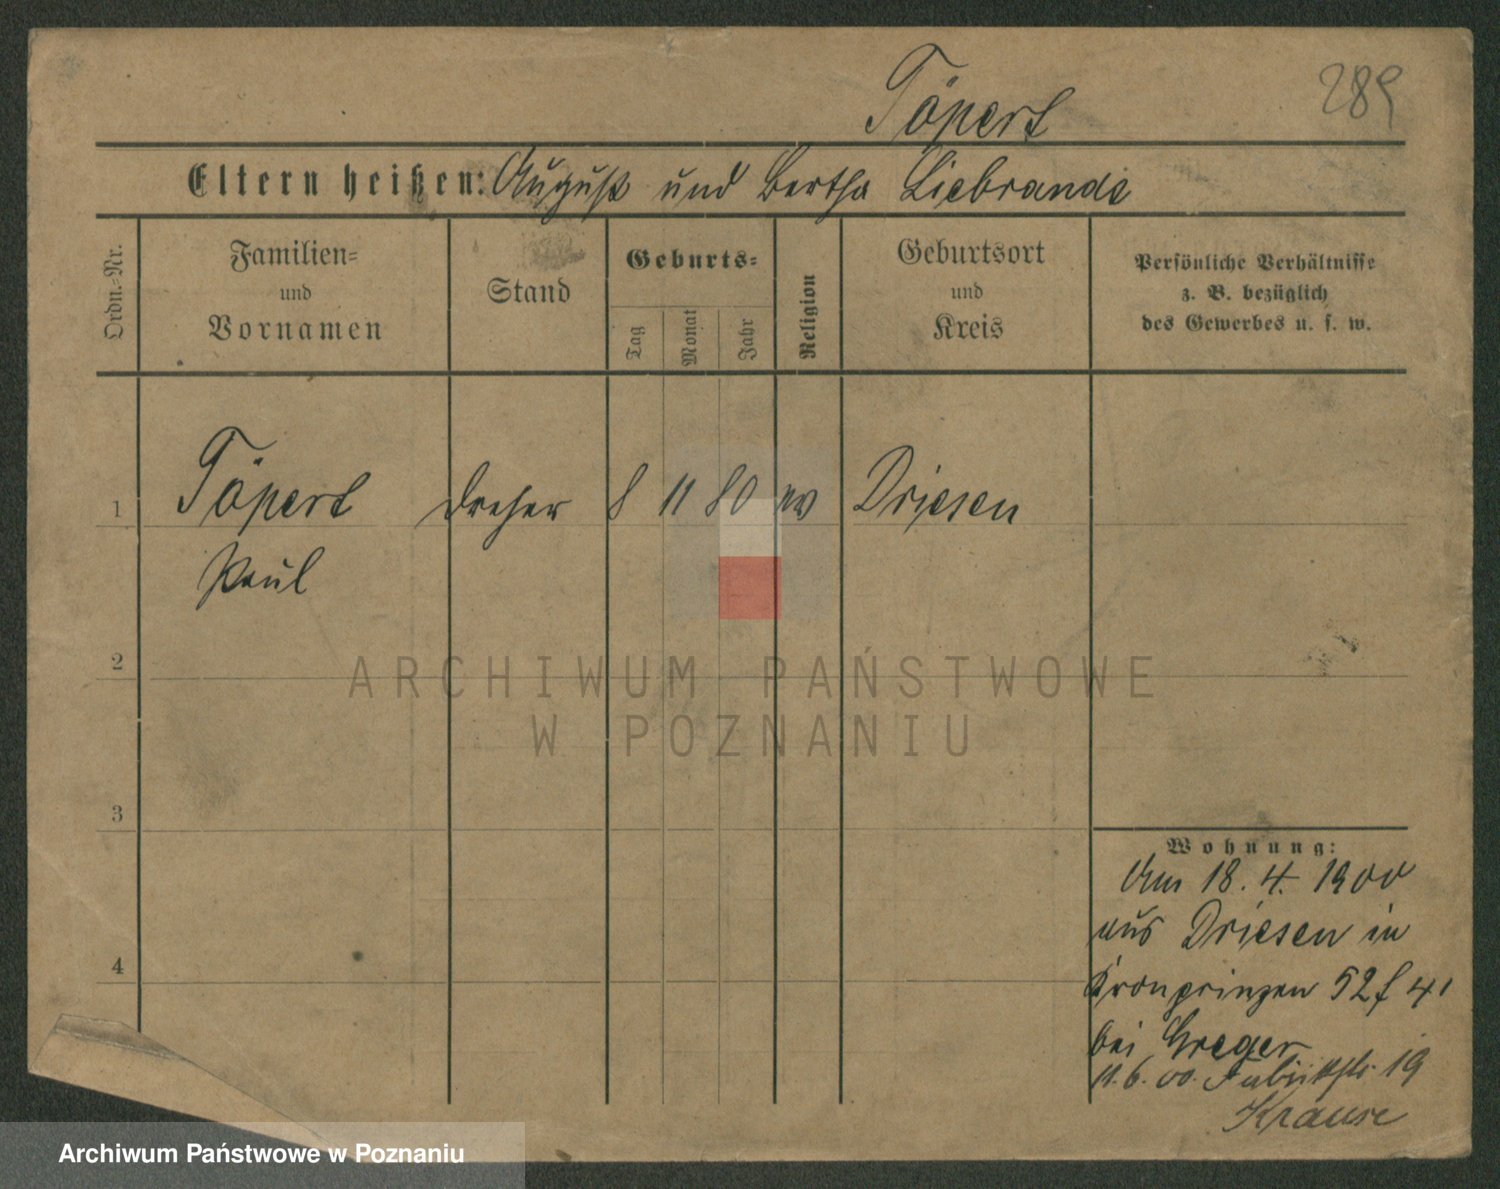 Töpert
289
Eltern heißen: August und Bertha Liebrandt
Ordn.-Nr.
Familien-
und
Vornamen
Stand
Geburts-
Tag
Monat
Jahr
Religion
Geburtsort
und
Kreis
Persönliche Verhältnisse
z. B. bezüglich
des Gewerbes u. s. w.
1 Töpert Dreher 8 11 80 ev Driesen
Paul
2
ARCHIWUM PAŃSTWOWE
W POZNANIU
3
Wohnung:
Am 18. 4. 1900
aus Driesen in
4
Kronprinzen 52 f 41
bei Greger
11. 6. 00. Fabrikstr. 19
Krause
Archiwum Państwowe w Poznaniu